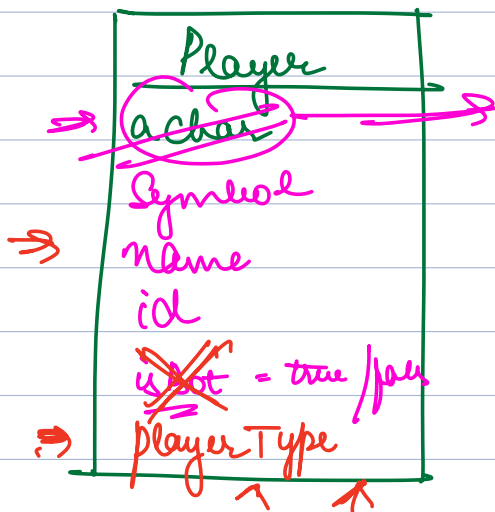 Player
a char
Symbol
name
id
isBot = true/fals
playerType